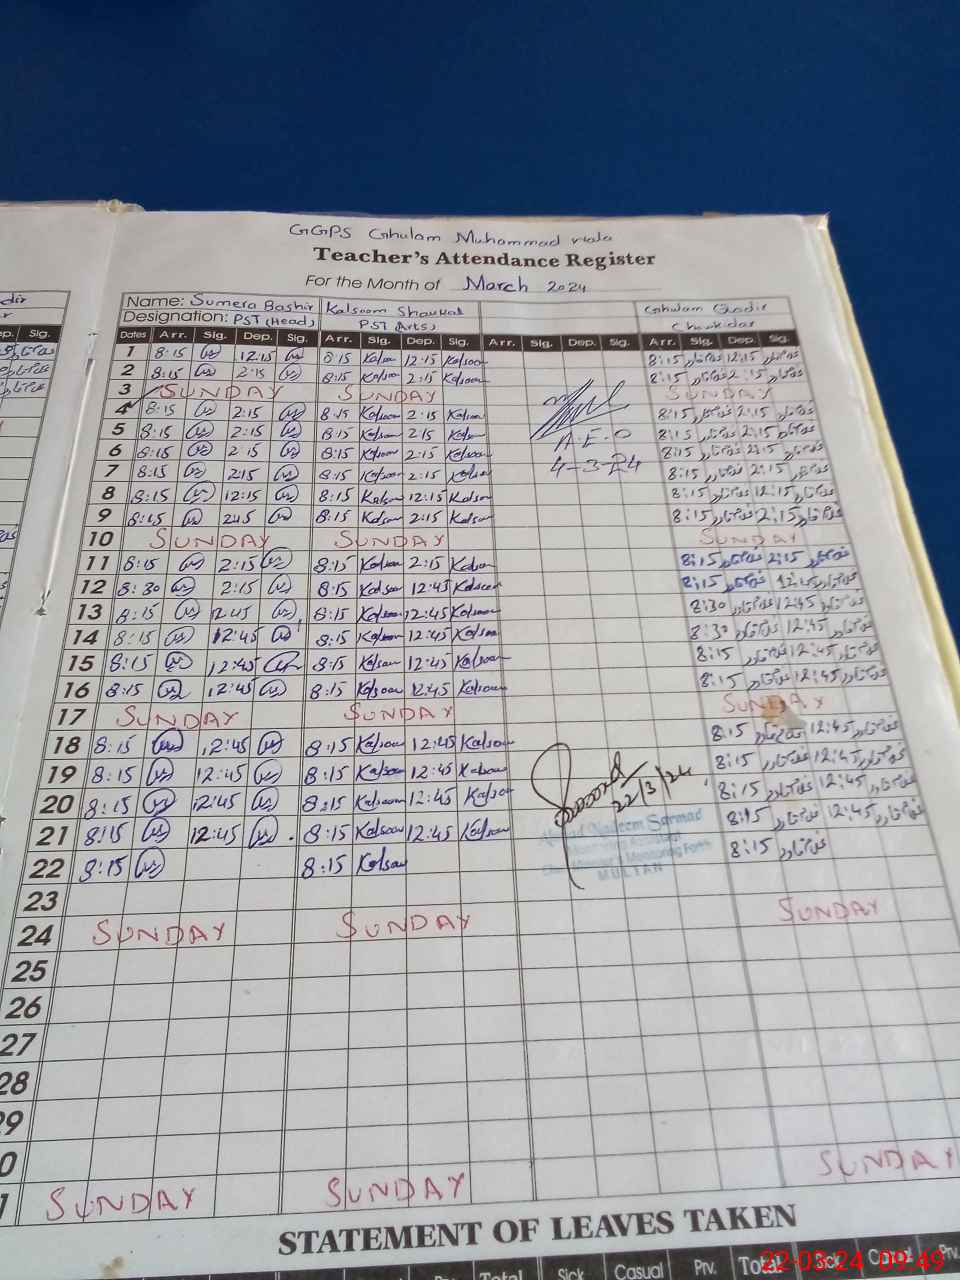 GGPS Ghulam Muhammad wala
Teacher's Attendance Register
For the Month of March 2024
Name: Sumera Bashir Kalsoom Shaukat Ghulam Qadir
Designation: PST (Head) PST (Arts) Chowkidar
Dates Arr. Sig. Dep. Sig. Arr. Sig. Dep. Sig. Arr. Sig. Dep. Sig. Arr. Sig. Dep. Sig.
1 8:15 12:15 8:15 Kalsoom 12:15 Kalsoom 8:15 12:15
2 8:15 2:15 8:15 Kalsoom 2:15 Kalsoom 8:15 2:15
3 SUNDAY SUNDAY SUNDAY
4 8:15 2:15 8:15 Kalsoom 2:15 Kalsoom 8:15 2:15
5 8:15 2:15 8:15 Kalsoom 2:15 Kalsoom 8:15 2:15
A.E.O
6 8:15 2:15 8:15 Kalsoom 2:15 Kalsoom 8:15 2:15
4-3-24
7 8:15 2:15 8:15 Kalsoom 2:15 Kalsoom 8:15 2:15
8 8:15 12:15 8:15 Kalsoom 12:15 Kalsoom 8:15 12:15
9 8:15 2:15 8:15 Kalsoom 2:15 Kalsoom 8:15 2:15
10 SUNDAY SUNDAY SUNDAY
11 8:15 2:15 8:15 Kalsoom 2:15 Kalsoom 8:15 2:15
12 8:30 2:15 8:15 Kalsoom 12:45 Kalsoom 8:15 12:45
13 8:15 12:45 8:15 Kalsoom 12:45 Kalsoom 8:30 12:45
14 8:15 12:45 8:15 Kalsoom 12:45 Kalsoom 8:30 12:45
15 8:15 12:45 8:15 Kalsoom 12:45 Kalsoom 8:15 12:45
16 8:15 12:45 8:15 Kalsoom 12:45 Kalsoom 8:15 12:45
17 SUNDAY SUNDAY SUNDAY
18 8:15 12:45 8:15 Kalsoom 12:45 Kalsoom 8:15 12:45
19 8:15 12:45 8:15 Kalsoom 12:45 Kalsoom 8:15 12:45
20 8:15 12:45 8:15 Kalsoom 12:45 Kalsoom 22/3/24 8:15 12:45
21 8:15 12:45 8:15 Kalsoom 12:45 Kalsoom 8:15 12:45
Nadeem Sarmad
Monitoring Assistant
Chief Minister's Monitoring Force
MULTAN
22 8:15 8:15 Kalsoom 8:15
23
24 SUNDAY SUNDAY SUNDAY
25
26
27
28
29
SUNDAY SUNDAY SUNDAY
STATEMENT OF LEAVES TAKEN
Prv. Total Sick Casual Prv. Total Sick Casual Prv.
22-03-24 09:49